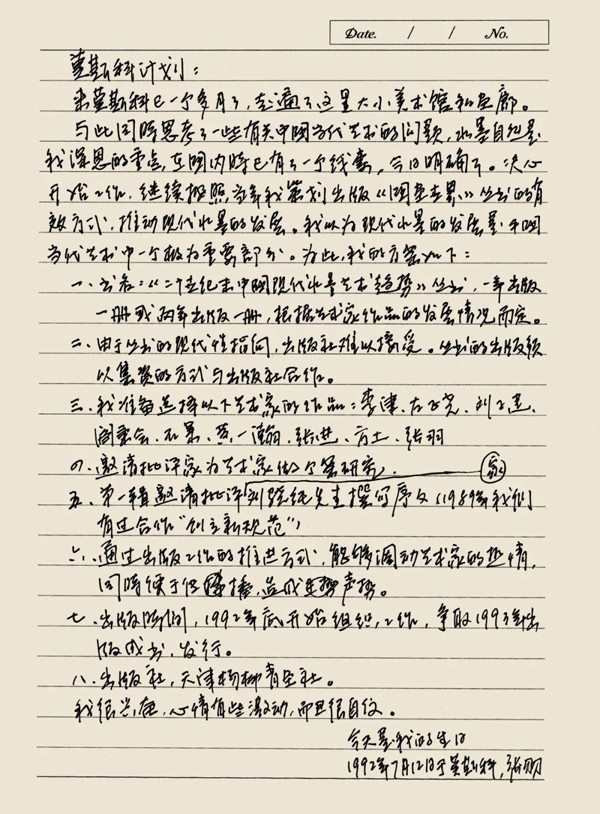 Date. / / No.
莫斯科计划：
来莫斯科已一个多月了，走遍了这里大小美术馆和画廊。
与此同时思考了一些有关中国当代艺术的问题，水墨自然是
我深思的重点，在国内时已有了一个线索，今日明确了。决心
开始工作，继续按照当年我策划出版《国画世界》丛书的有
效方式，推动现代水墨的发展。我以为现代水墨的发展是中国
当代艺术中一个极为重要部分。为此，我的方案如下：
一、书名：《二十世纪末中国现代水墨艺术趋势》丛书，一年出版
一册或两年出版一册，根据艺术家作品的发展情况而定。
二、由于丛书的现代性指向，出版社难以接受。丛书的出版须
以集资的方式与出版社合作。
三、我准备选择以下艺术家的作品：李津、左正尧、刘子建、
阎秉会、石果、黄一瀚、张进、方土、张羽
四、邀请批评家为艺术家做个案研究。
五、第一辑邀请批评家刘骁纯先生撰写序文（1989年我们
有过合作“创立新规范”）
六、通过出版工作的推进方式，能够调动艺术家的热情，
同时便于传播，造成连势声势。
七、出版时间，1992年底开始组织工作，争取1993年出
版成书，发行。
八、出版社，天津杨柳青画社。
我很兴奋，心情有些激动，而且很自信。
今天是我的生日
1992年7月12日于莫斯科，张羽